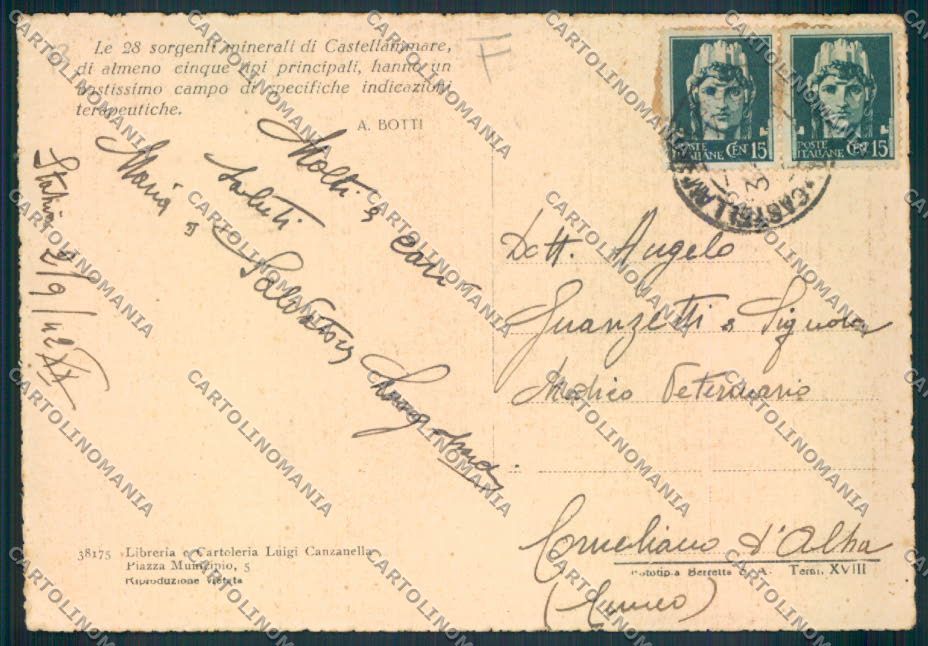 Le 28 sorgenti minerali di Castellammare,
di almeno cinque tipi principali, hanno un
vastissimo campo di specifiche indicazioni
terapeutiche.
A. BOTTI
17
POSTE
ITALIANE CEN 15
POSTE
ITALIANE CEN 15
CASTELLAM
3
Molti e cari
saluti
Maria e Salvatore
2/9/42 XX
Dott. Angelo
Guanzetti e Signora
Medico Veterinario
Corneliano d'Alba
(Cuneo)
38175 Libreria e Cartoleria Luigi Canzanella
Piazza Municipio, 5
Riproduzione vietata
Fototipia Berretta S. A. Terni, XVIII
CARTOLINOMANIA